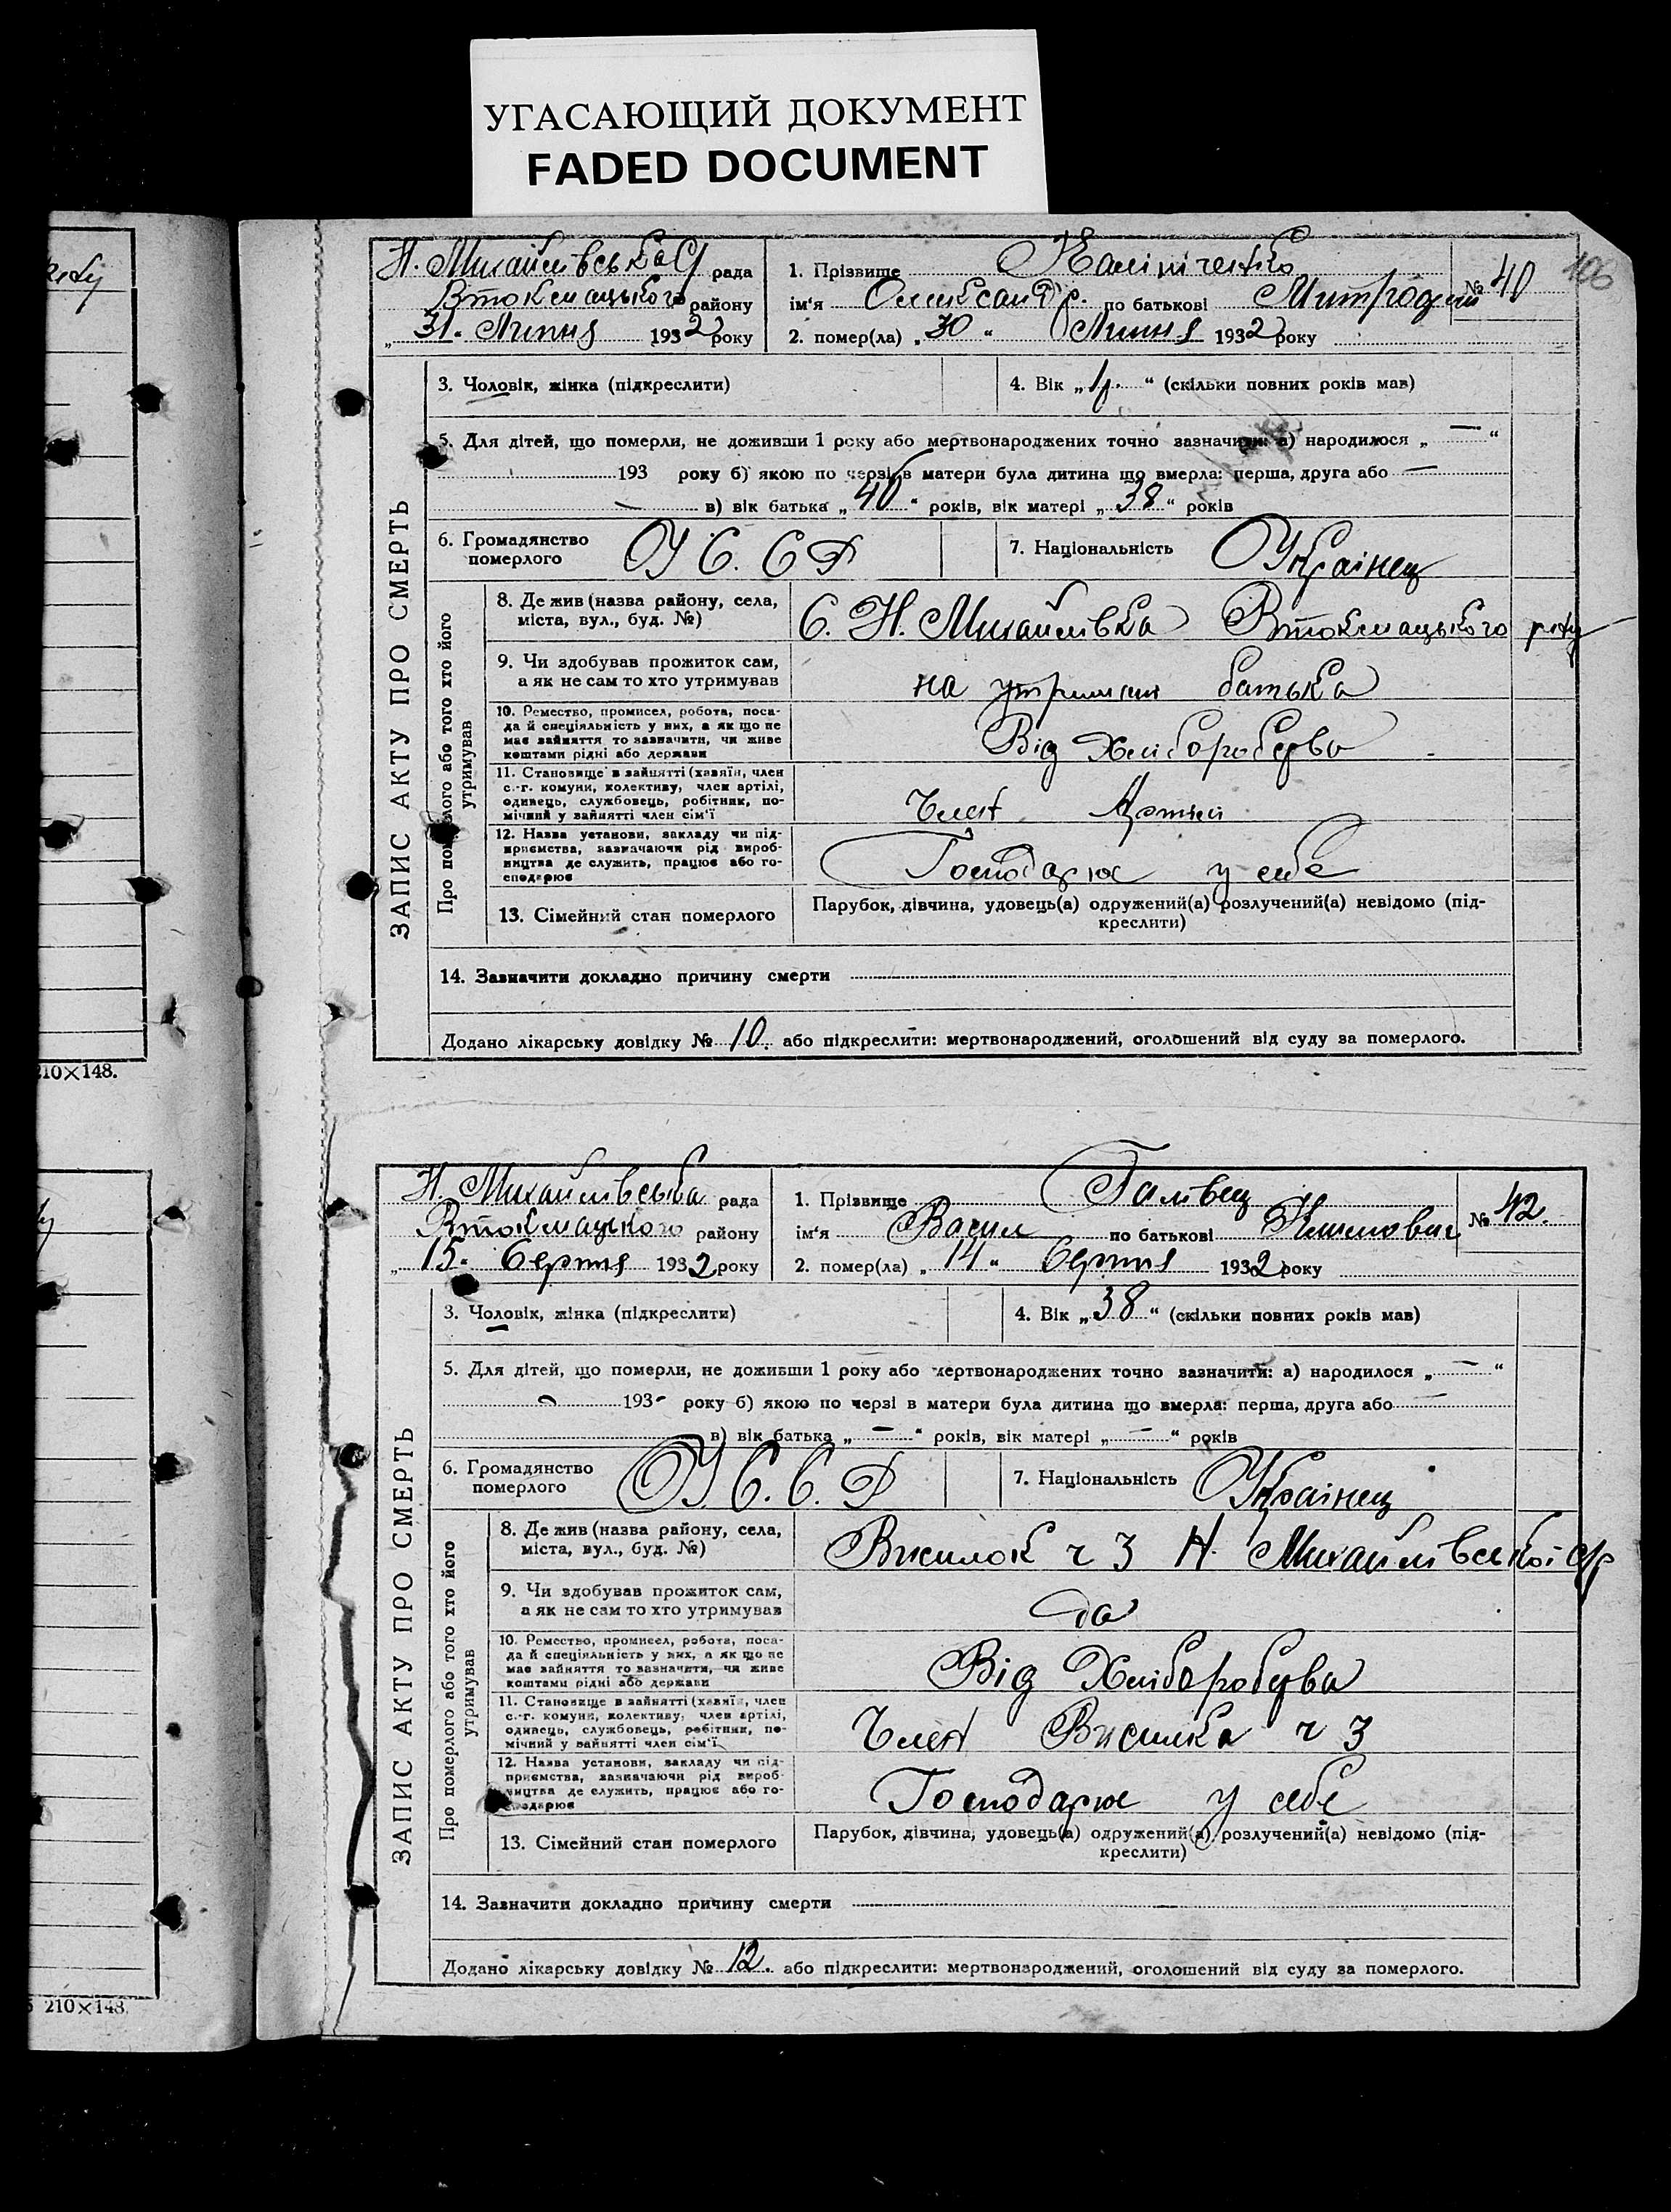 УГАСАЮЩИЙ ДОКУМЕНТ
FADED DOCUMENT
106
210×148.
210×148.
ЗАПИС АКТУ ПРО СМЕРТЬ
Н. Михайлівська С/ рада
Втокмацького району
„ 31. Липня 1932 року
1. Прізвище Калініченко
№ 40
ім'я Олександр. по батькові
2. помер(ла) „ 30 “ Липня 1932 року
3. Чоловік, жінка (підкреслити)
4. Вік „ 1р. “ (скільки повних років мав)
5. Для дітей, що померли, не доживши 1 року або мертвонароджених точно зазначити: а) народилося „ — “
193 року б) якою по черзі в матери була дитина що вмерла: перша, друга або —
— в) вік батька „ 40 “ років, вік матері „ 38 “ років
6. Громадянство померлого У С. С Р
7. Національність Українец
Про померлого або того хто його утримував
8. Де жив (назва району, села,
міста, вул., буд. №)
С. Н. Михайлівка Втокмацького р-ну
9. Чи здобував прожиток сам,
а як не сам то хто утримував
на утриман батька
10. Ремество, промисел, робота, поса-
да й спеціяльність у них, а як що не
має зайняття то зазначити, чи живе
коштами рідні або держави
Від Хліборобства
11. Становище в зайнятті (хазяїн, член
с.-г. комуни, колективу, член артілі,
одинець, службовець, робітник, по-
мічний у зайнятті член сім'ї
Член Артілі
12. Назва установи, закладу чи під-
приємства, зазначаючи рід вироб-
ництва де служить, працює або го-
сподарює
Господарює у себе
13. Сімейний стан померлого
Парубок, дівчина, удовець(а) одружений(а) розлучений(а) невідомо (під-
креслити)
14. Зазначити докладно причину смерти
Додано лікарську довідку № 10. або підкреслити: мертвонароджений, оголошений від суду за померлого.
ЗАПИС АКТУ ПРО СМЕРТЬ
Н. Михайлівська рада
Втокмацького району
„ 15. Серпня 1932 року
1. Прізвище Галівец
№ 42.
ім'я Васил по батькові
2. помер(ла) „ 14 “ Серпня 1932 року
3. Чоловік, жінка (підкреслити)
4. Вік „ 38 “ (скільки повних років мав)
5. Для дітей, що померли, не доживши 1 року або мертвонароджених точно зазначити: а) народилося „ — “
— 193- року б) якою по черзі в матери була дитина що вмерла: перша, друга або —
в) вік батька „ — “ років, вік матері „ — “ років
6. Громадянство померлого У С. С. Р
7. Національність Українец
Про померлого або того хто його утримував
8. Де жив (назва району, села,
міста, вул., буд. №)
Висилок ч 3 Н. Михайлівської с/р
9. Чи здобував прожиток сам,
а як не сам то хто утримував
да
10. Ремество, промисел, робота, поса-
да й спеціяльність у них, а як що не
має зайняття то зазначити, чи живе
коштами рідні або держави
Від Хліборобства
11. Становище в зайнятті (хазяїн, член
с.-г. комуни, колективу, член артілі,
одинець, службовець, робітник, по-
мічний у зайнятті член сім'ї
Член Висилка ч 3
12. Назва установи, закладу чи під-
приємства, зазначаючи рід вироб-
ництва де служить, працює або го-
сподарює
Господарює у себе
13. Сімейний стан померлого
Парубок, дівчина, удовець(а) одружений(а) розлучений(а) невідомо (під-
креслити)
14. Зазначити докладно причину смерти
Додано лікарську довідку № 12. або підкреслити: мертвонароджений, оголошений від суду за померлого.